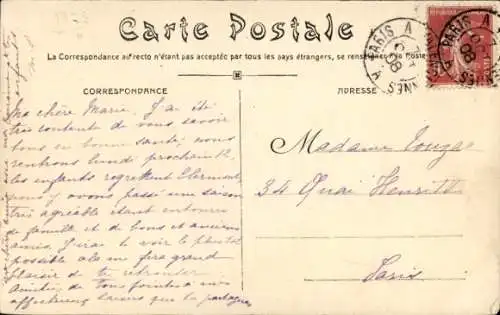 Carte Postale
La Correspondance au recto n'étant pas acceptée par tous les pays étrangers, se renseigner à la Poste
CORRESPONDANCE
ADRESSE
Ma chère Marie. J'ai été
très contente de vous savoir
tous en bonne santé, nous
rentrons lundi prochain
les enfants regrettent
nous y avons passé une saison
très agréable étant entourés
de famille et de bons et anciens
amis. J'irai te voir le plutôt
possible cela me fera grand
plaisir de te retrouver.
Amitiés de tous jointes à nos
affectueux baisers que tu partageras
Madame
34 Quai
Paris
PARIS
08
PARIS
08